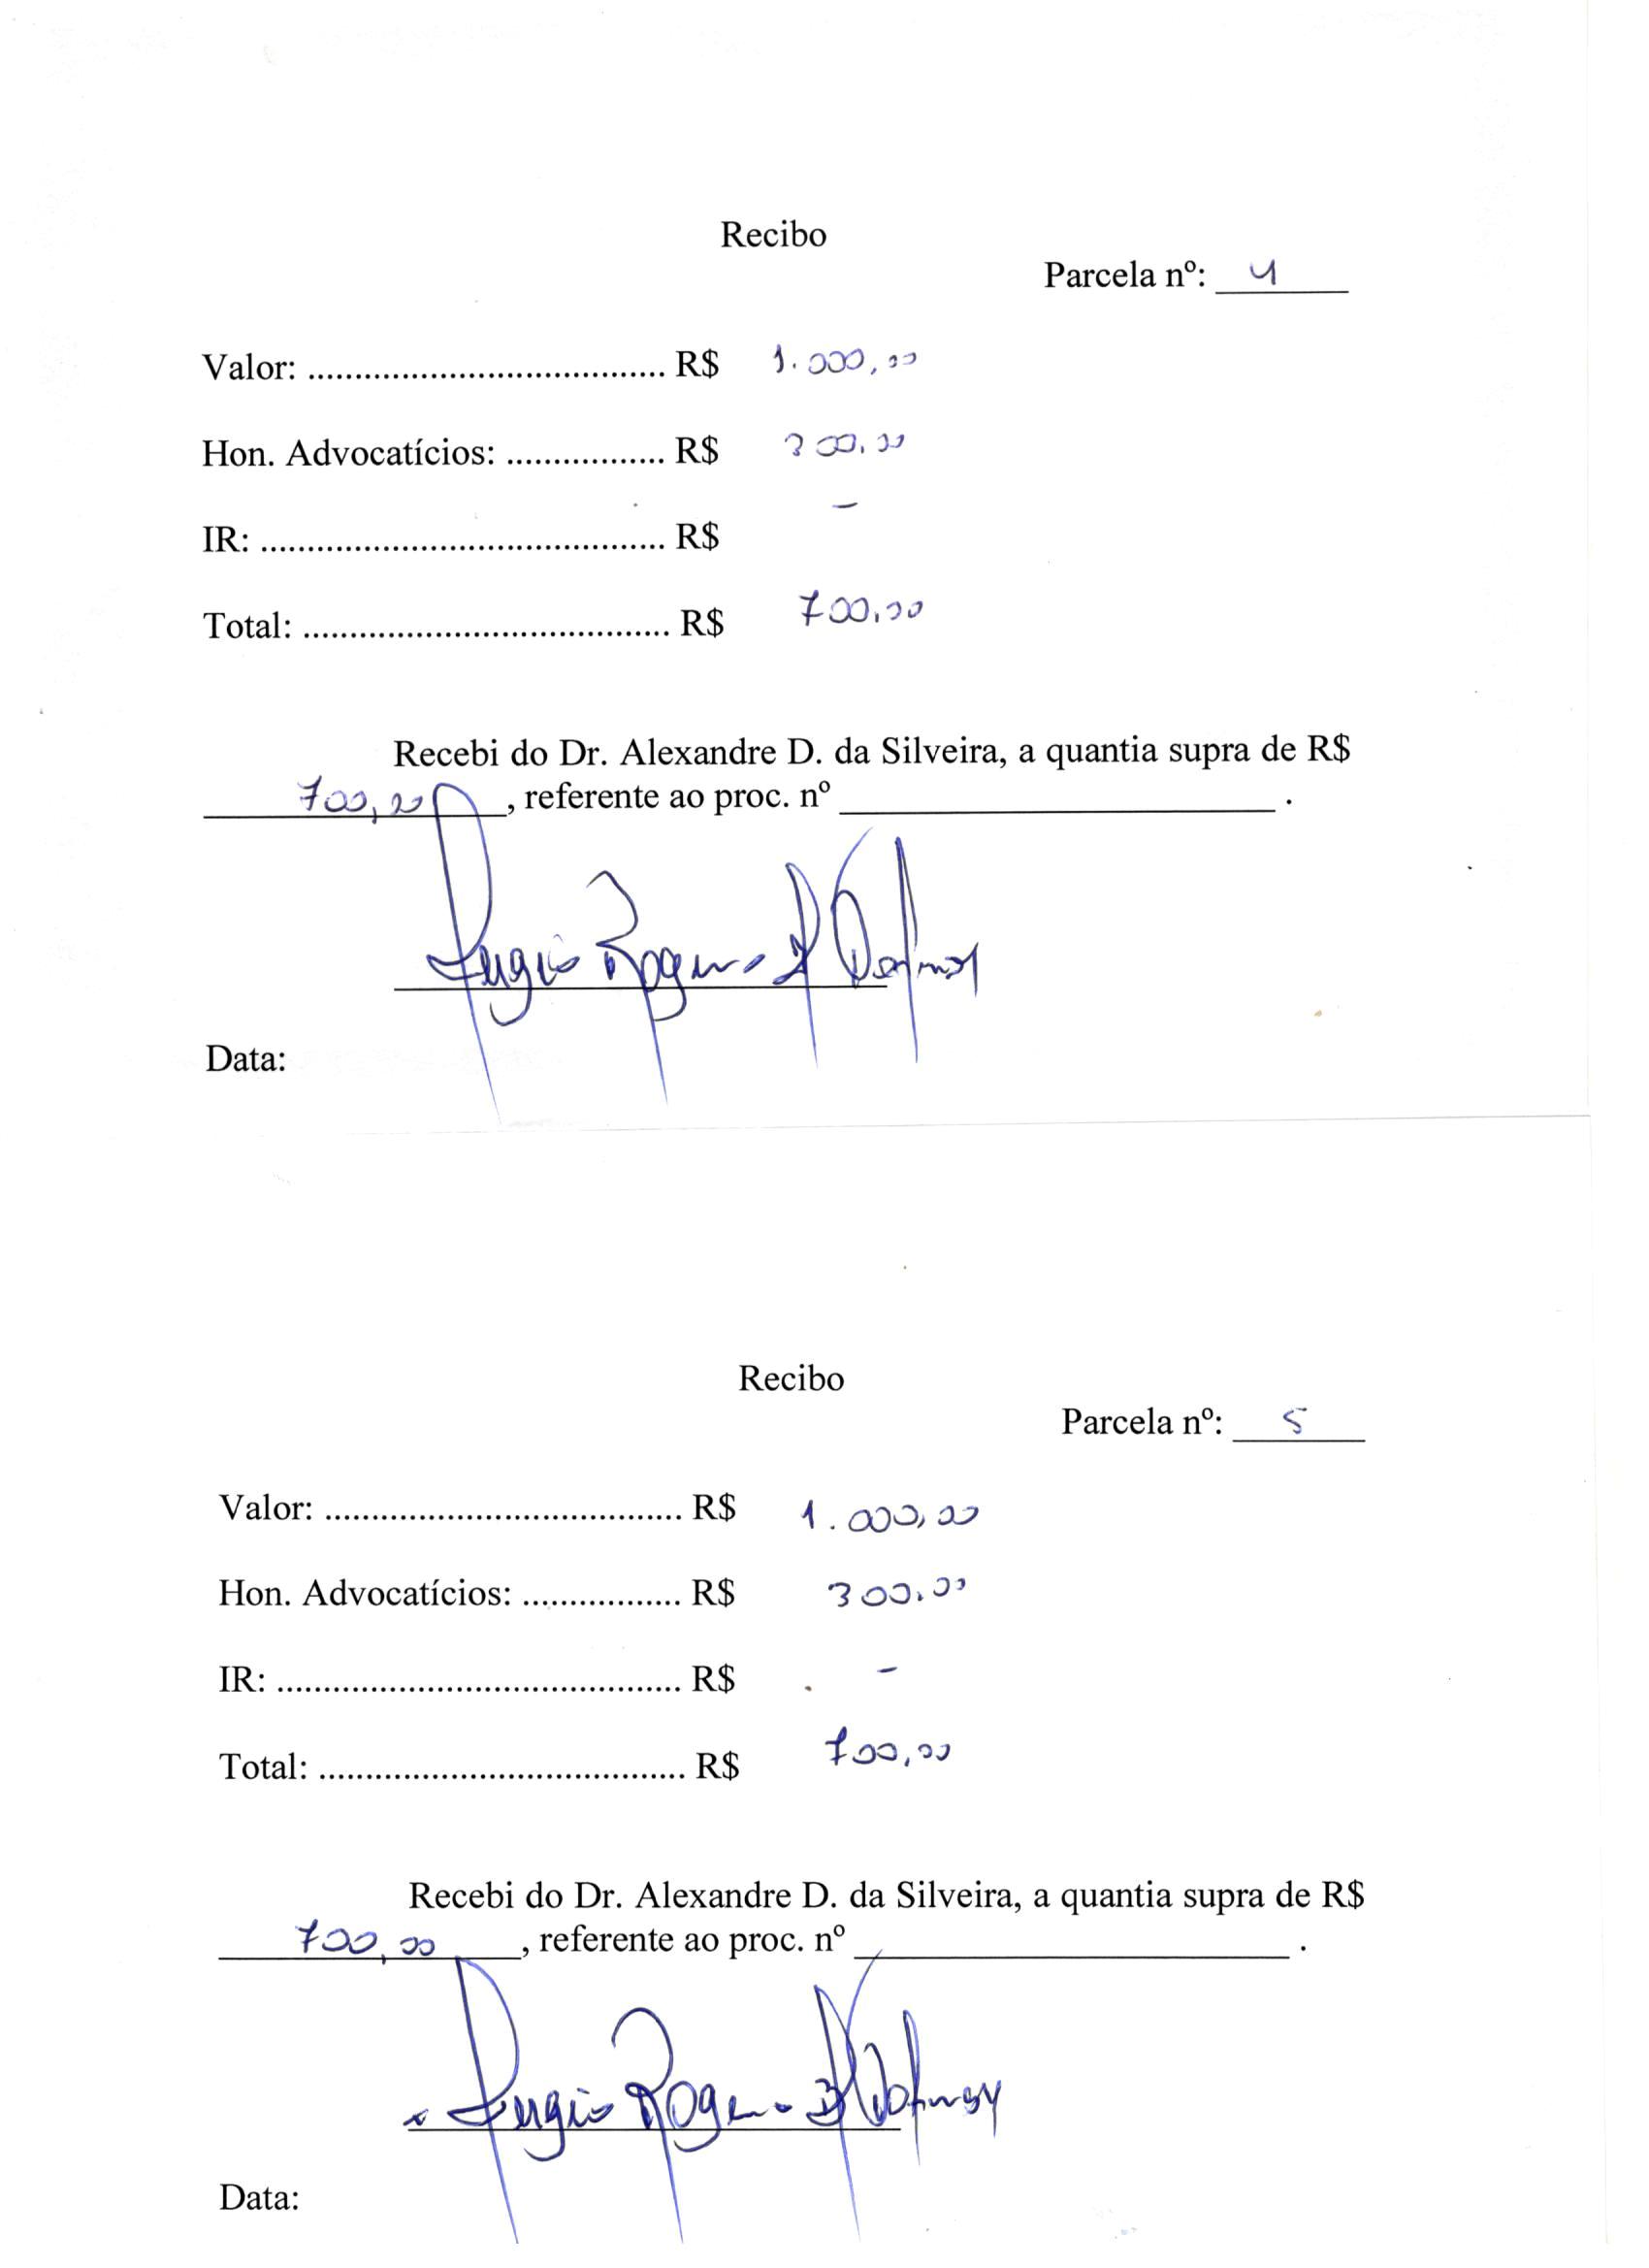 Recibo
Parcela nº: 4
Valor: ...................................... R$ 1.000,00
Hon. Advocatícios: ................. R$ 300,00
IR: ........................................... R$ -
Total: ....................................... R$ 700,00
Recebi do Dr. Alexandre D. da Silveira, a quantia supra de R$
700,00, referente ao proc. nº ________________________ .
Sergio Roger
Data:
Recibo
Parcela nº: 5
Valor: ...................................... R$ 1.000,00
Hon. Advocatícios: ................. R$ 300,00
IR: ........................................... R$ -
Total: ....................................... R$ 700,00
Recebi do Dr. Alexandre D. da Silveira, a quantia supra de R$
700,00, referente ao proc. nº ________________________ .
Sergio Roger
Data: